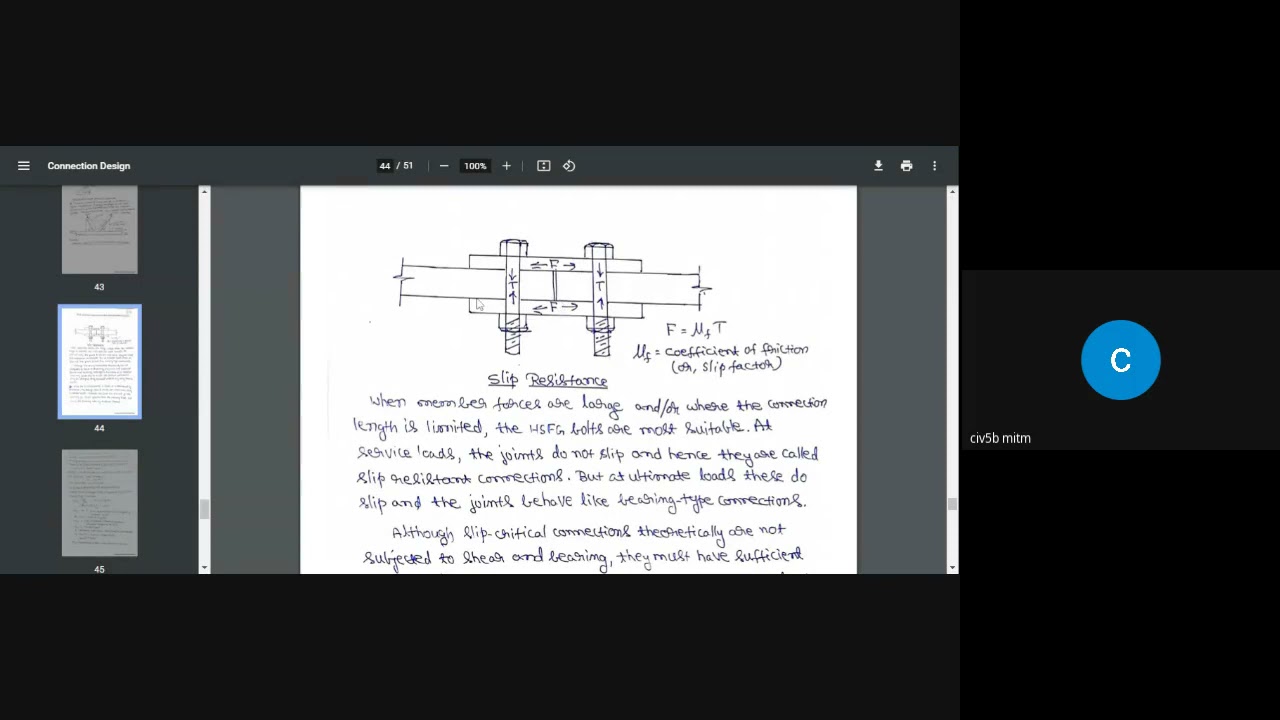 Connection Design
44 / 51
100%
43
44
45
← F →
T
T
← F →
F = μf T
μf = coefficient of friction
(or, slip factor)
Slip Resistance
When member forces are large and/or where the connection
length is limited, the HSFG bolts are most suitable. At
service loads, the joints do not slip and hence they are called
slip resistant connections. But at ultimate loads these do
slip and the joints behave like bearing-type connections.
Although slip-critical connections theoretically are not
subjected to shear and bearing, they must have sufficient
C
civ5b mitm